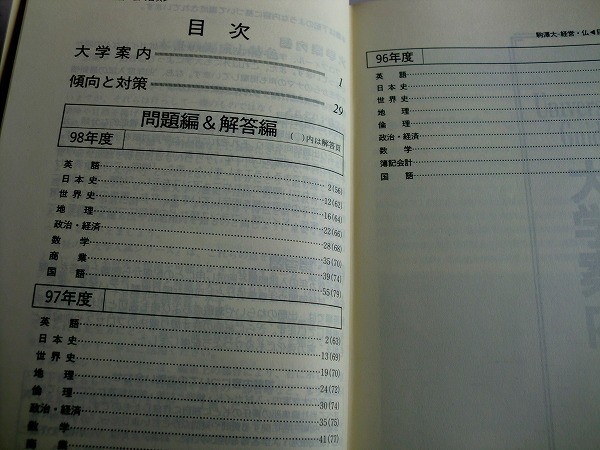 目次
大学案内 1
傾向と対策 29
問題編&解答編 ( )内は解答頁
98年度
英語 2(56)
日本史 12(62)
世界史 16(64)
地理 22(66)
政治・経済 28(68)
数学 35(70)
商業 39(74)
国語 55(79)
97年度
英語 2(63)
日本史 13(69)
世界史 19(70)
地理 24(72)
倫理 30(74)
政治・経済 35(75)
数学 41(77)
商業
駒澤大-経営・仏◀目
96年度
英語
日本史
世界史
地理
倫理
政治・経済
数学
簿記会計
国語